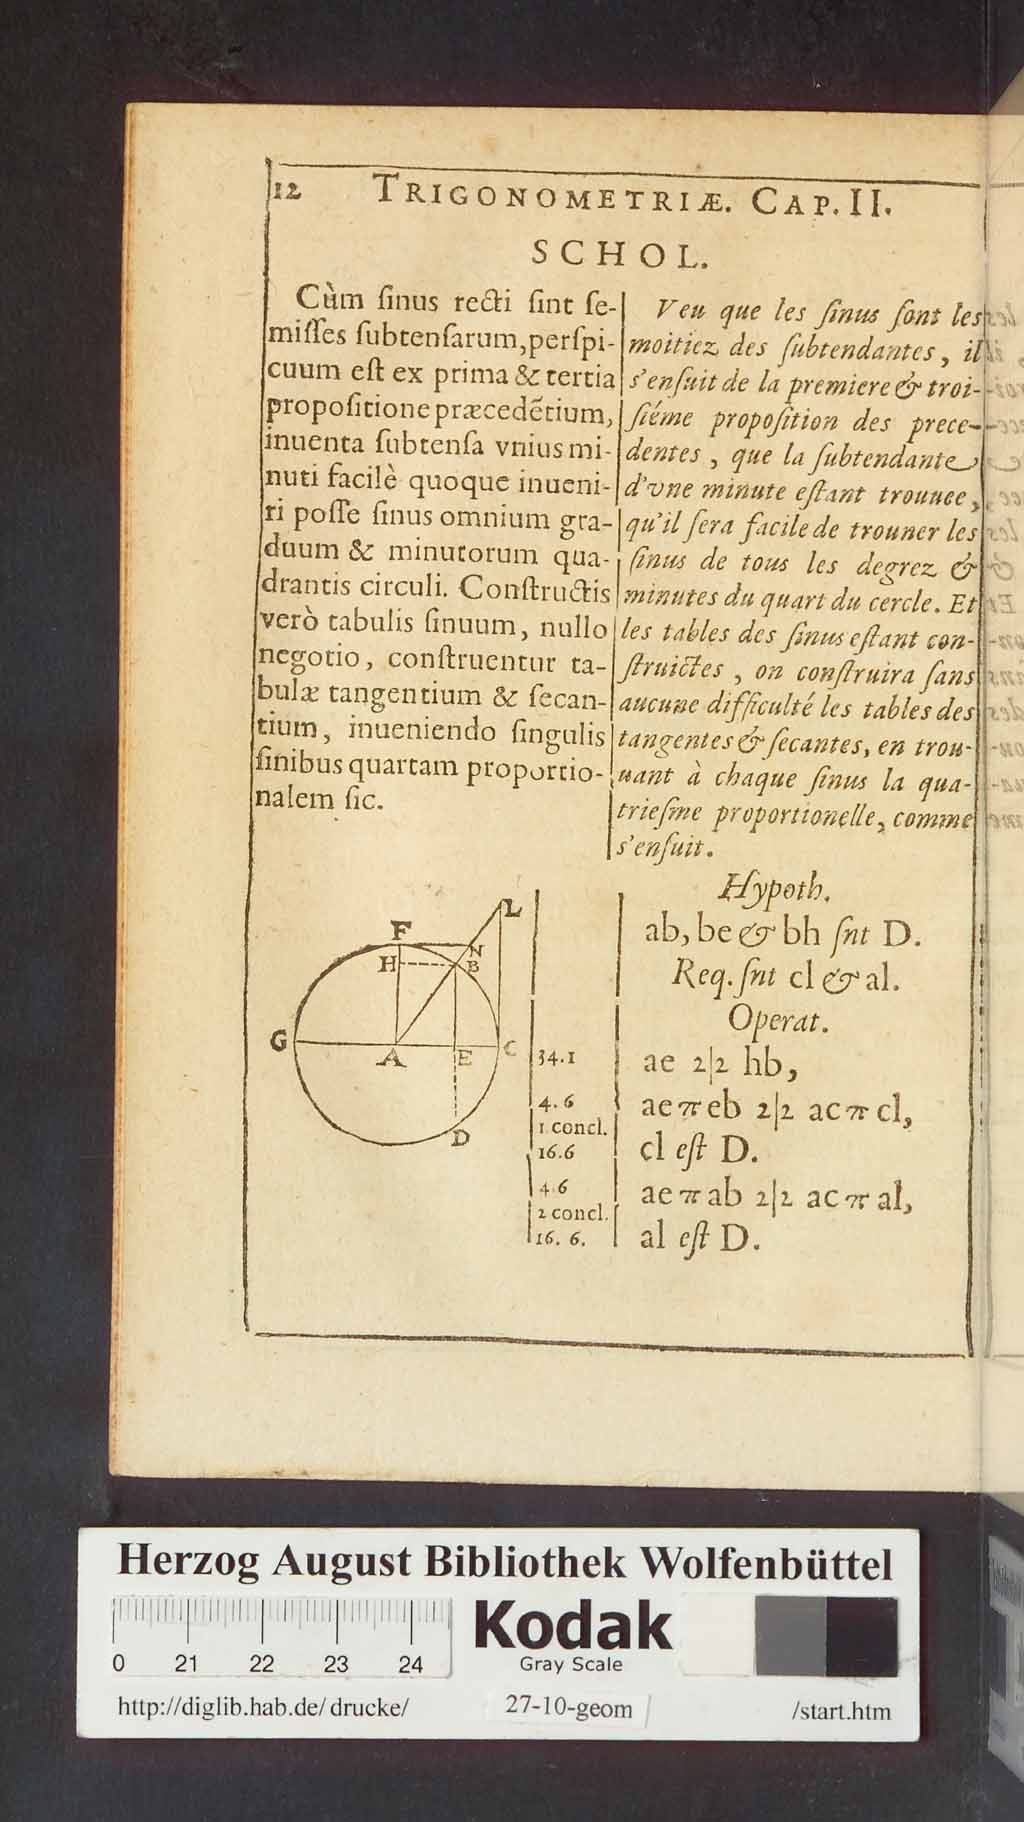 12 TRIGONOMETRIÆ. CAP. II.
SCHOL.
Cùm ſinus recti ſint ſe-
miſſes ſubtenſarum, perſpi-
cuum eſt ex prima & tertia
propoſitione præcedẽtium,
inuenta ſubtenſa vnius mi-
nuti facilè quoque inueni-
ri poſſe ſinus omnium gra-
duum & minutorum qua-
drantis circuli. Conſtructis
verò tabulis ſinuum, nullo
negotio, conſtruentur ta-
bulæ tangentium & ſecan-
tium, inueniendo ſingulis
ſinibus quartam proportio-
nalem ſic.
Veu que les ſinus ſont les
moitiez des ſubtendantes, il
s'enſuit de la premiere & troi-
ſiéme propoſition des prece-
dentes, que la ſubtendante
d'vne minute eſtant trouuee,
qu'il ſera facile de trouuer les
ſinus de tous les degrez &
minutes du quart du cercle. Et
les tables des ſinus eſtant con-
ſtruictes, on conſtruira ſans
aucune difficulté les tables des
tangentes & ſecantes, en trou-
uant à chaque ſinus la qua-
trieſme proportionelle, comme
s'enſuit.
L
F
N
H
B
G
A
E
C
D
Hypoth.
ab, be & bh ſnt D.
Req. ſnt cl & al.
Operat.
34.1 ae 2|2 hb,
4.6 ae π eb 2|2 ac π cl,
1 concl.
16.6 cl eſt D.
4.6 ae π ab 2|2 ac π al,
2 concl.
16. 6. al eſt D.
Herzog August Bibliothek Wolfenbüttel
0 21 22 23 24
Kodak
Gray Scale
http://diglib.hab.de/drucke/ 27-10-geom /start.htm